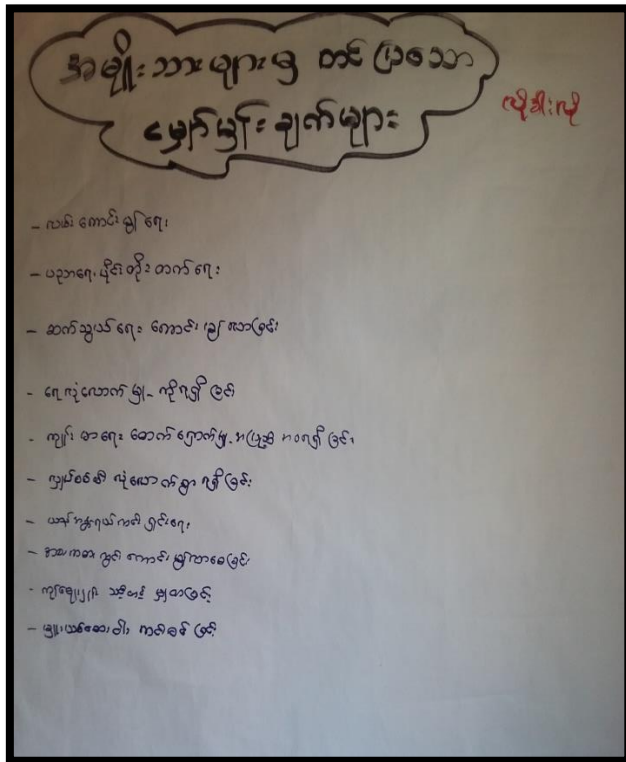 အမျိုးသားများမှ တင်ပြသော
မျှော်မှန်းချက်များ
လိုခါးလို
- လမ်းကောင်းမွန်ရေး
- ပညာရေးပိုင်းတိုးတက်ရေး
- ဆက်သွယ်ရေး ကောင်းမွန်လာခြင်း
- ရေလုံလောက်မှု ရရှိခြင်း
- ကျန်းမာရေးစောက်ရှောက်မှု အပြည့်အဝရရှိခြင်း
- လျှပ်စစ်မီး လုံလောက်စွာ ရရှိခြင်း
- ယာဉ်အန္တရာယ်ကင်းရှင်းရေး
- ကောင်းမွန်လာစေခြင်း
- မူးယစ်ဆေးဝါး ကင်းစင်ခြင်း